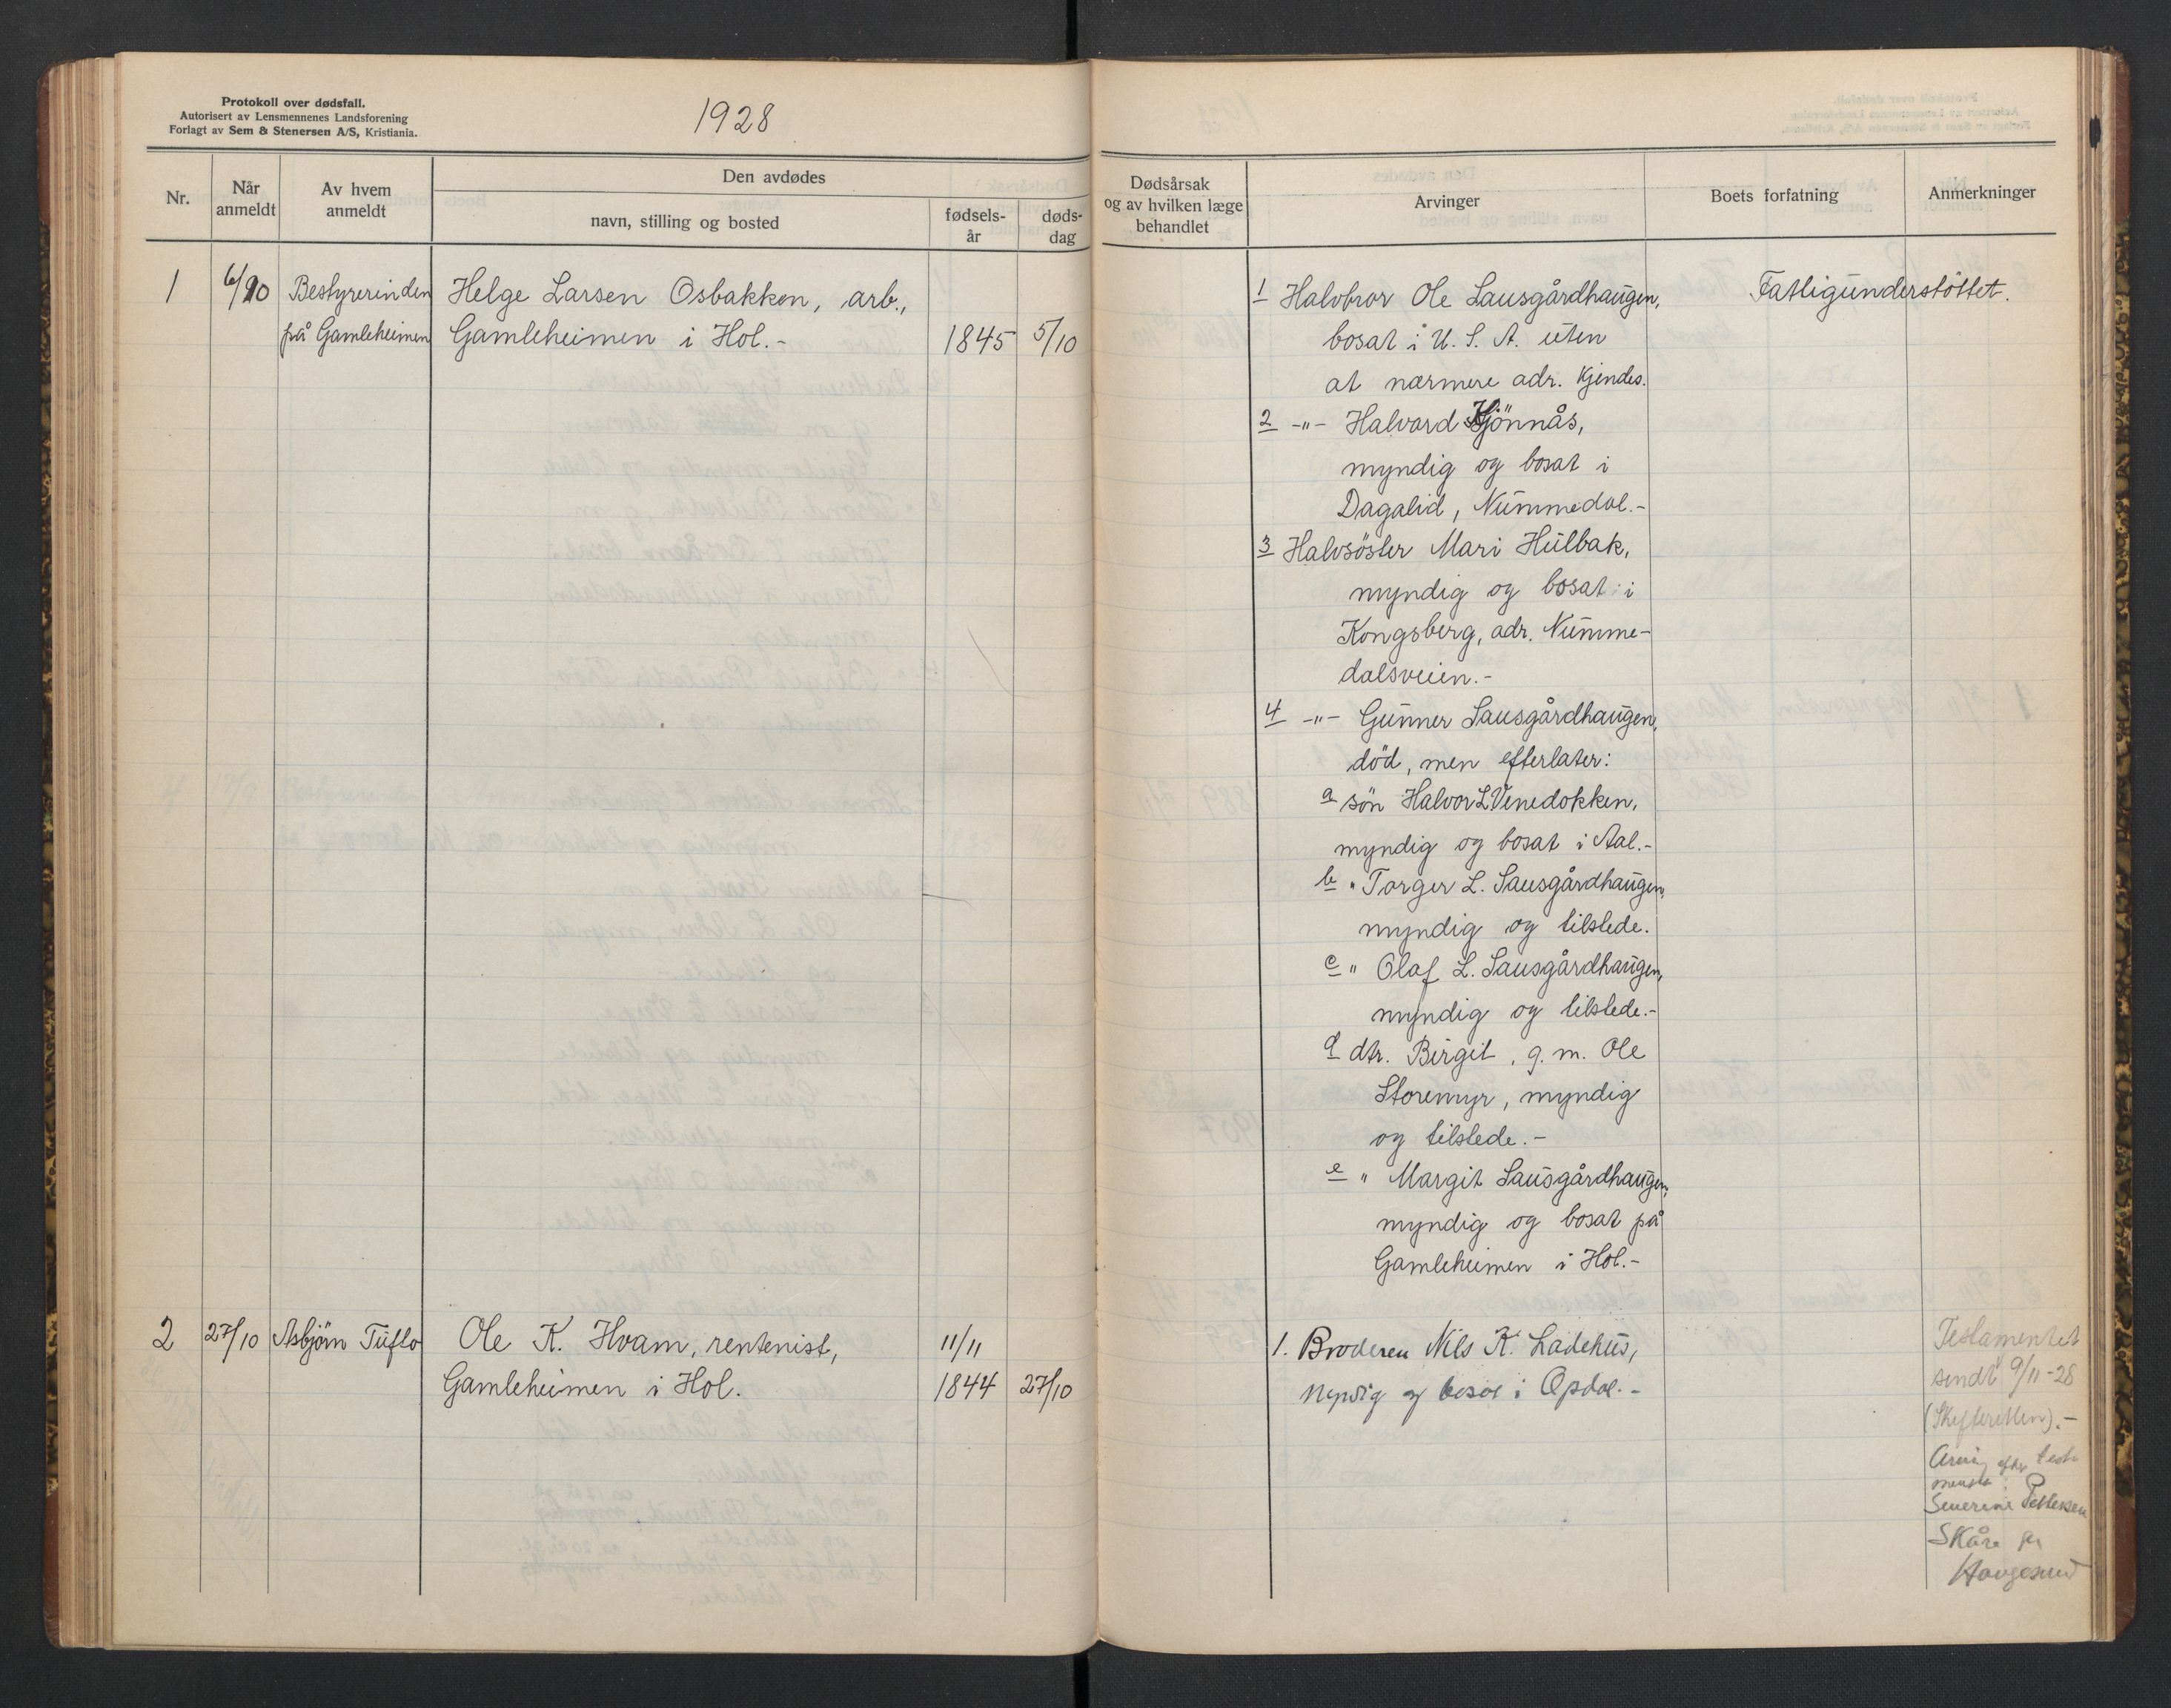 Protokoll over dødsfall.
Autorisert av Lensmennenes Landsforening
Forlagt av Sem & Stenersen A/S, Kristiania.
1928
Nr.
Når
anmeldt
Av hvem
anmeldt
Den avdødes
navn, stilling og bosted
fødsels-
år
døds-
dag
Dødsårsak
og av hvilken læge
behandlet
Arvinger
Boets forfatning
Anmerkninger
1 6/10 Bestyrerinden Helge Larsen Osbakken, arb.,
på Gamleheimen Gamleheimen i Hol.- 1845 5/10
1 Halvbror Ole Lausgårdhaugen,
bosat i U. S. A. uten
at nærmere adr. kjendes.
2 -"- Halvard Kjönnås,
myndig og bosat i
Dagalid, Nummedal.-
3 Halvsöster Mari Hulbak,
myndig og bosat i
Kongsberg, adr. Numme-
dalsveien.-
4 -"- Gunner Lausgårdhaugen,
död, men efterlater:
a sön Halvor L Venedokken,
myndig og bosat i Aal.-
b " Torger L. Lausgårdhaugen,
myndig og tilstede.
c " Olaf L. Lausgårdhaugen,
myndig og tilstede.-
d dtr. Birgit, g. m. Ole
Storemyr, myndig
og tilstede.-
e " Margit Lausgårdhaugen,
myndig og bosat på
Gamleheimen i Hol.-
Fattigunderstöttet.
2 27/10 Asbjörn Tufto Ole K. Hvam, rentenist, 11/11
Gamleheimen i Hol. 1844 27/10
1. Broderen Nils K. Ladehus,
myndig og bosat i Opdal.-
Testamentet
sendt 9/11-28
(Skifteretten).-
Arving efter testa
mentet:
Severine Pettersen
Skåre pr
Haugesund